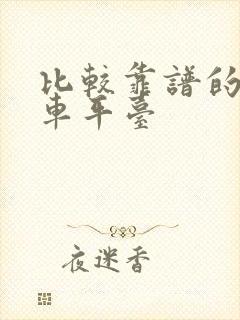 比較靠譜的
車平臺
夜迷香